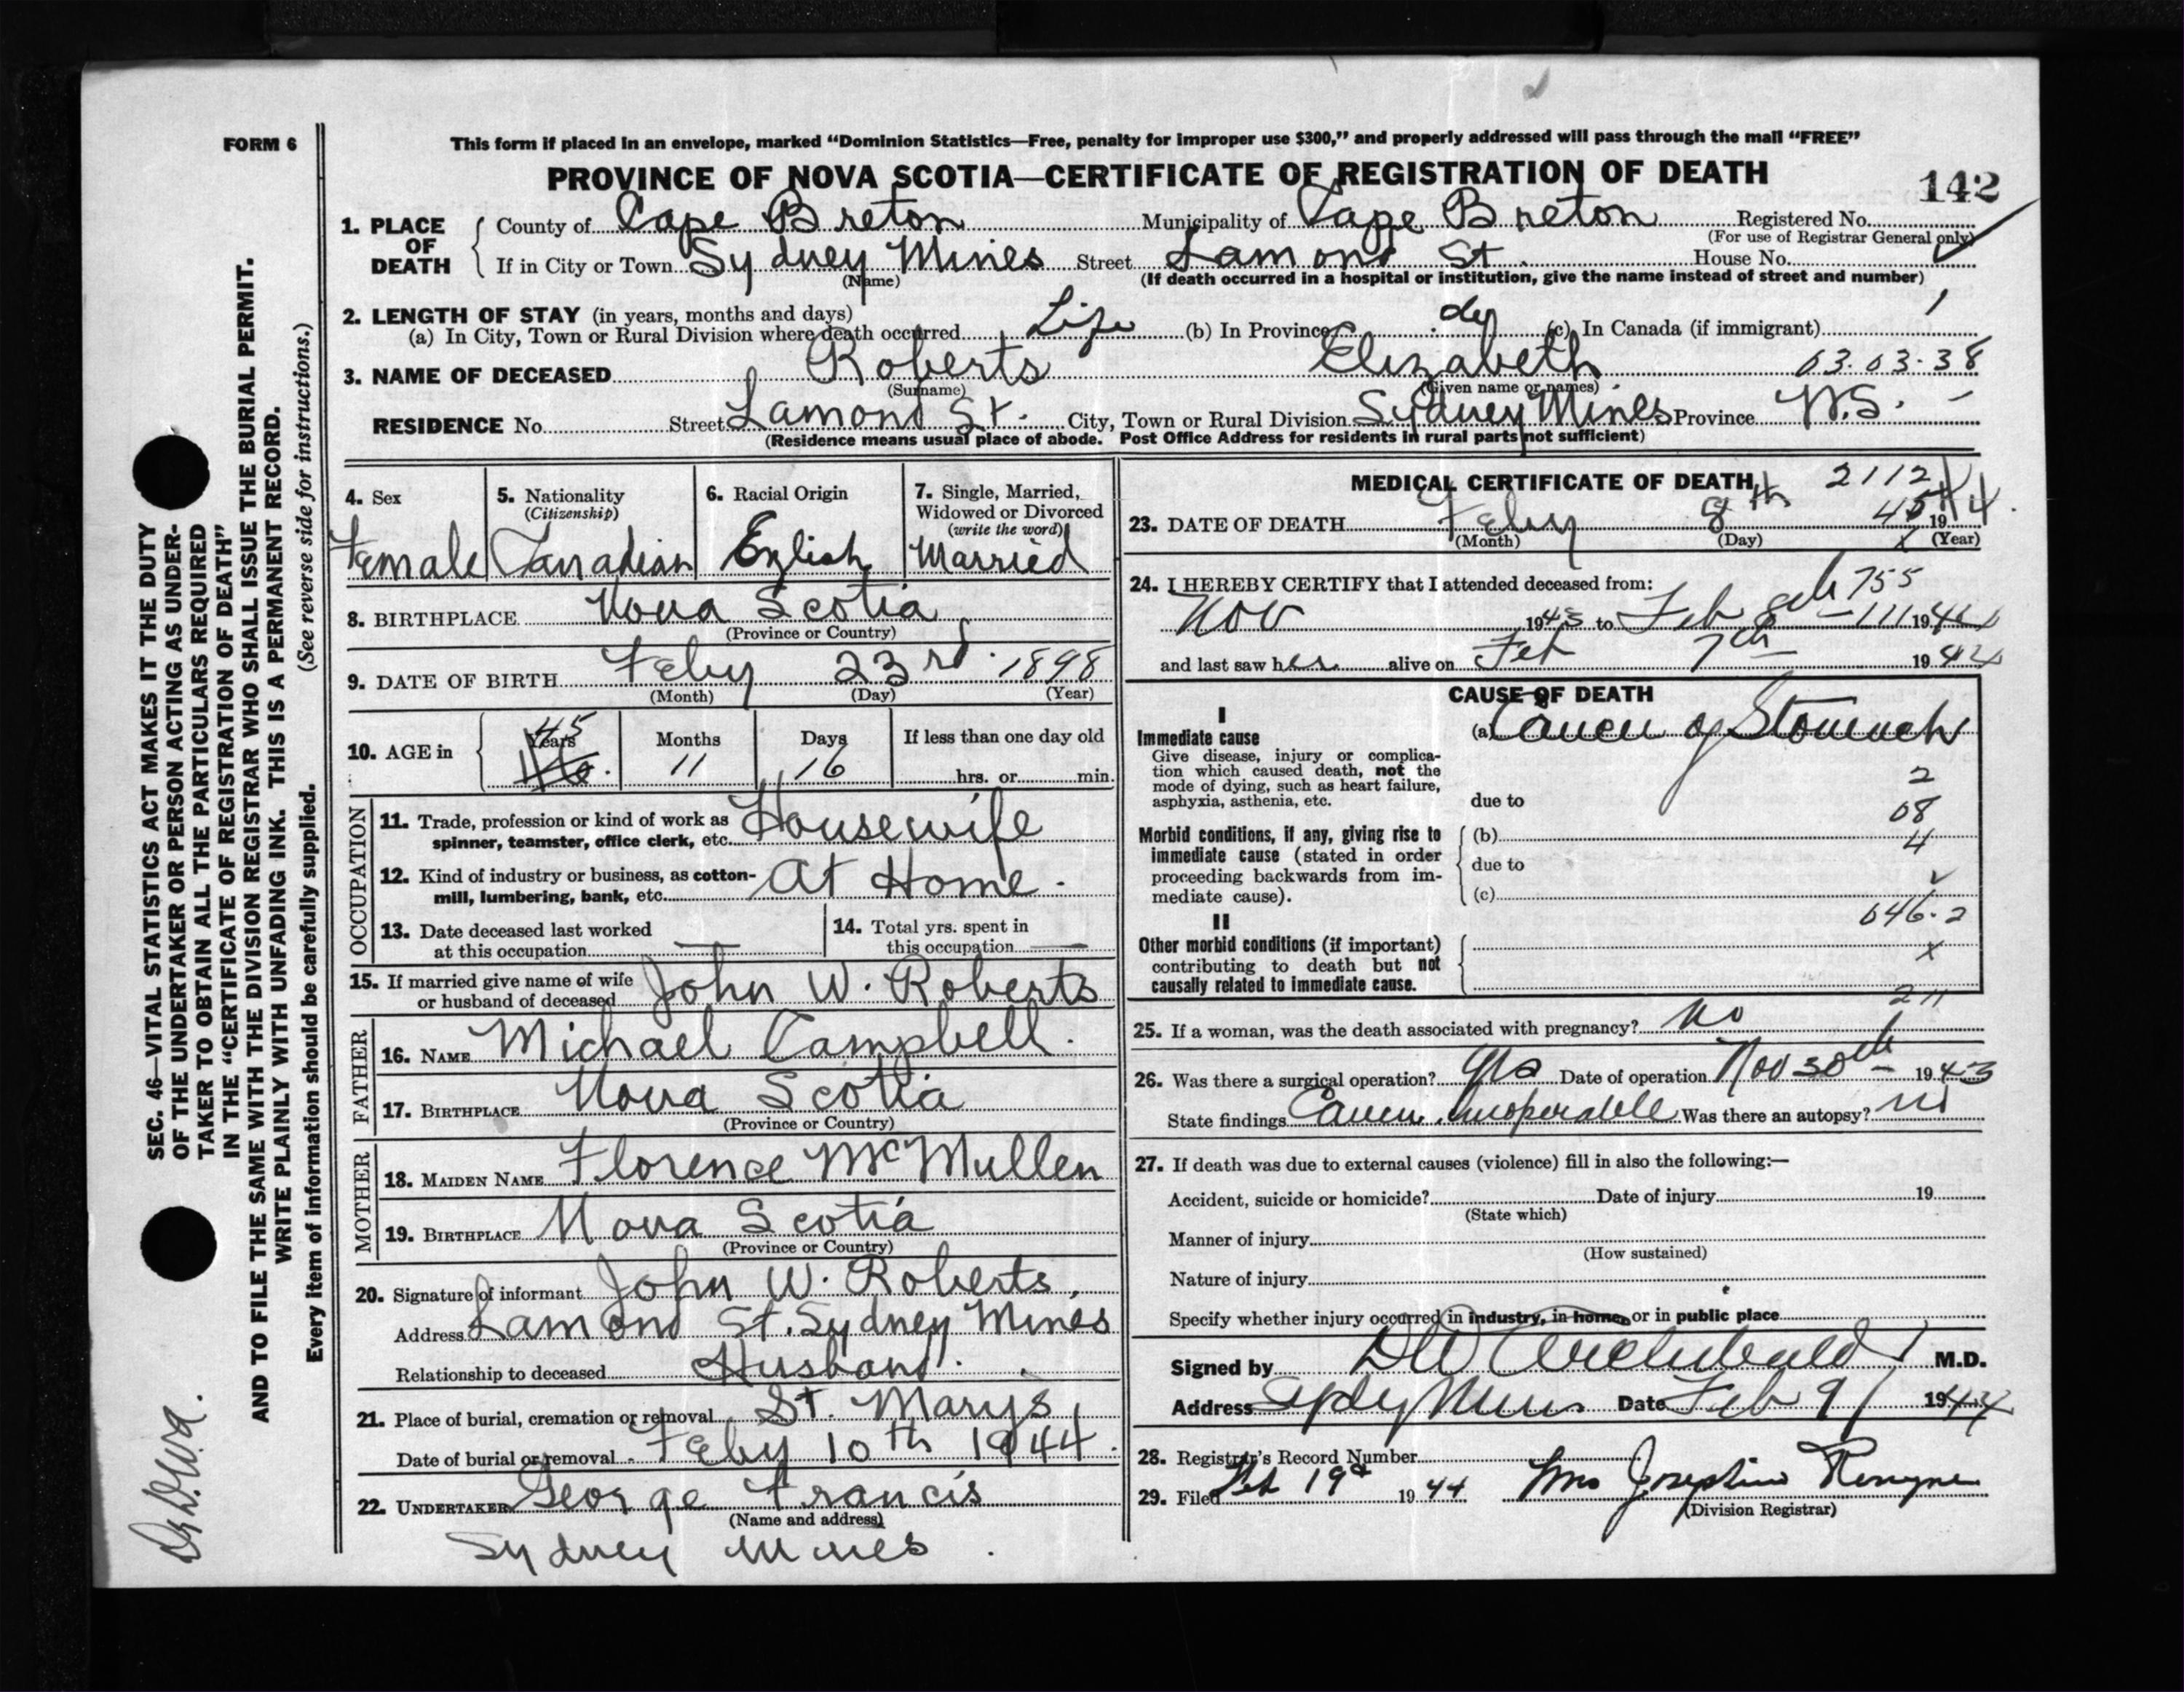 FORM 6
This form if placed in an envelope, marked “Dominion Statistics—Free, penalty for improper use $300,” and properly addressed will pass through the mail “FREE”
PROVINCE OF NOVA SCOTIA—CERTIFICATE OF REGISTRATION OF DEATH
142
1. PLACE OF DEATH
County of Cape Breton Municipality of Cape Breton Registered No.
(For use of Registrar General only)
If in City or Town Sydney Mines Street Lamond St. House No.
(Name) (If death occurred in a hospital or institution, give the name instead of street and number)
2. LENGTH OF STAY (in years, months and days)
(a) In City, Town or Rural Division where death occurred Life (b) In Province do (c) In Canada (if immigrant) 1
3. NAME OF DECEASED Roberts Elizabeth 03.03.38
(Surname) (Given name or names)
RESIDENCE No. Street Lamond St. City, Town or Rural Division Sydney Mines Province N.S. –
(Residence means usual place of abode. Post Office Address for residents in rural parts not sufficient)
4. Sex
Female
5. Nationality
(Citizenship)
Canadian
6. Racial Origin
English
7. Single, Married,
Widowed or Divorced
(write the word)
Married
8. BIRTHPLACE Nova Scotia
(Province or Country)
9. DATE OF BIRTH Feby 23rd 1898
(Month) (Day) (Year)
10. AGE in
Years Months Days If less than one day old
45 11 16 hrs. or min.
46.
OCCUPATION
11. Trade, profession or kind of work as
spinner, teamster, office clerk, etc. Housewife
12. Kind of industry or business, as cotton-
mill, lumbering, bank, etc. At Home.
13. Date deceased last worked
at this occupation —
14. Total yrs. spent in
this occupation —
15. If married give name of wife
or husband of deceased John W. Roberts
FATHER
16. NAME Michael Campbell.
17. BIRTHPLACE Nova Scotia
(Province or Country)
MOTHER
18. MAIDEN NAME Florence McMullen
19. BIRTHPLACE Nova Scotia
(Province or Country)
20. Signature of informant John W. Roberts,
Address Lamond St. Sydney Mines
Relationship to deceased Husband.
21. Place of burial, cremation or removal St. Marys
Date of burial or removal Feby 10th 1944.
22. UNDERTAKER George Francis
(Name and address)
Sydney Mines.
MEDICAL CERTIFICATE OF DEATH
2112
23. DATE OF DEATH Feby 8th 45 1944.
(Month) (Day) (Year)
24. I HEREBY CERTIFY that I attended deceased from:
755
Nov 1943 to Feb 8th – 111 1944
and last saw her alive on Feb 7th 1944
CAUSE OF DEATH
I
Immediate cause
Give disease, injury or complica-
tion which caused death, not the
mode of dying, such as heart failure,
asphyxia, asthenia, etc.
(a) Cancer of Stomach
2
due to
08
Morbid conditions, if any, giving rise to
immediate cause (stated in order
proceeding backwards from im-
mediate cause).
(b)
4
due to
(c)
046.2
II
Other morbid conditions (if important)
contributing to death but not
causally related to immediate cause.
x
211
25. If a woman, was the death associated with pregnancy? No
26. Was there a surgical operation? Yes Date of operation Nov 30th – 1943
State findings Cancer. Inoperable Was there an autopsy? no
27. If death was due to external causes (violence) fill in also the following:—
Accident, suicide or homicide? Date of injury 19
(State which)
Manner of injury
(How sustained)
Nature of injury
Specify whether injury occurred in industry, in home, or in public place
Signed by DW Archibald M.D.
Address Sydney Mines Date Feb 9/ 1944
28. Registrar's Record Number
29. Filed Feb 19th 1944 Mrs Josephine
(Division Registrar)
SEC. 46—VITAL STATISTICS ACT MAKES IT THE DUTY
OF THE UNDERTAKER OR PERSON ACTING AS UNDER-
TAKER TO OBTAIN ALL THE PARTICULARS REQUIRED
IN THE “CERTIFICATE OF REGISTRATION OF DEATH”
AND TO FILE THE SAME WITH THE DIVISION REGISTRAR WHO SHALL ISSUE THE BURIAL PERMIT.
WRITE PLAINLY WITH UNFADING INK. THIS IS A PERMANENT RECORD.
Every item of information should be carefully supplied. (See reverse side for instructions.)